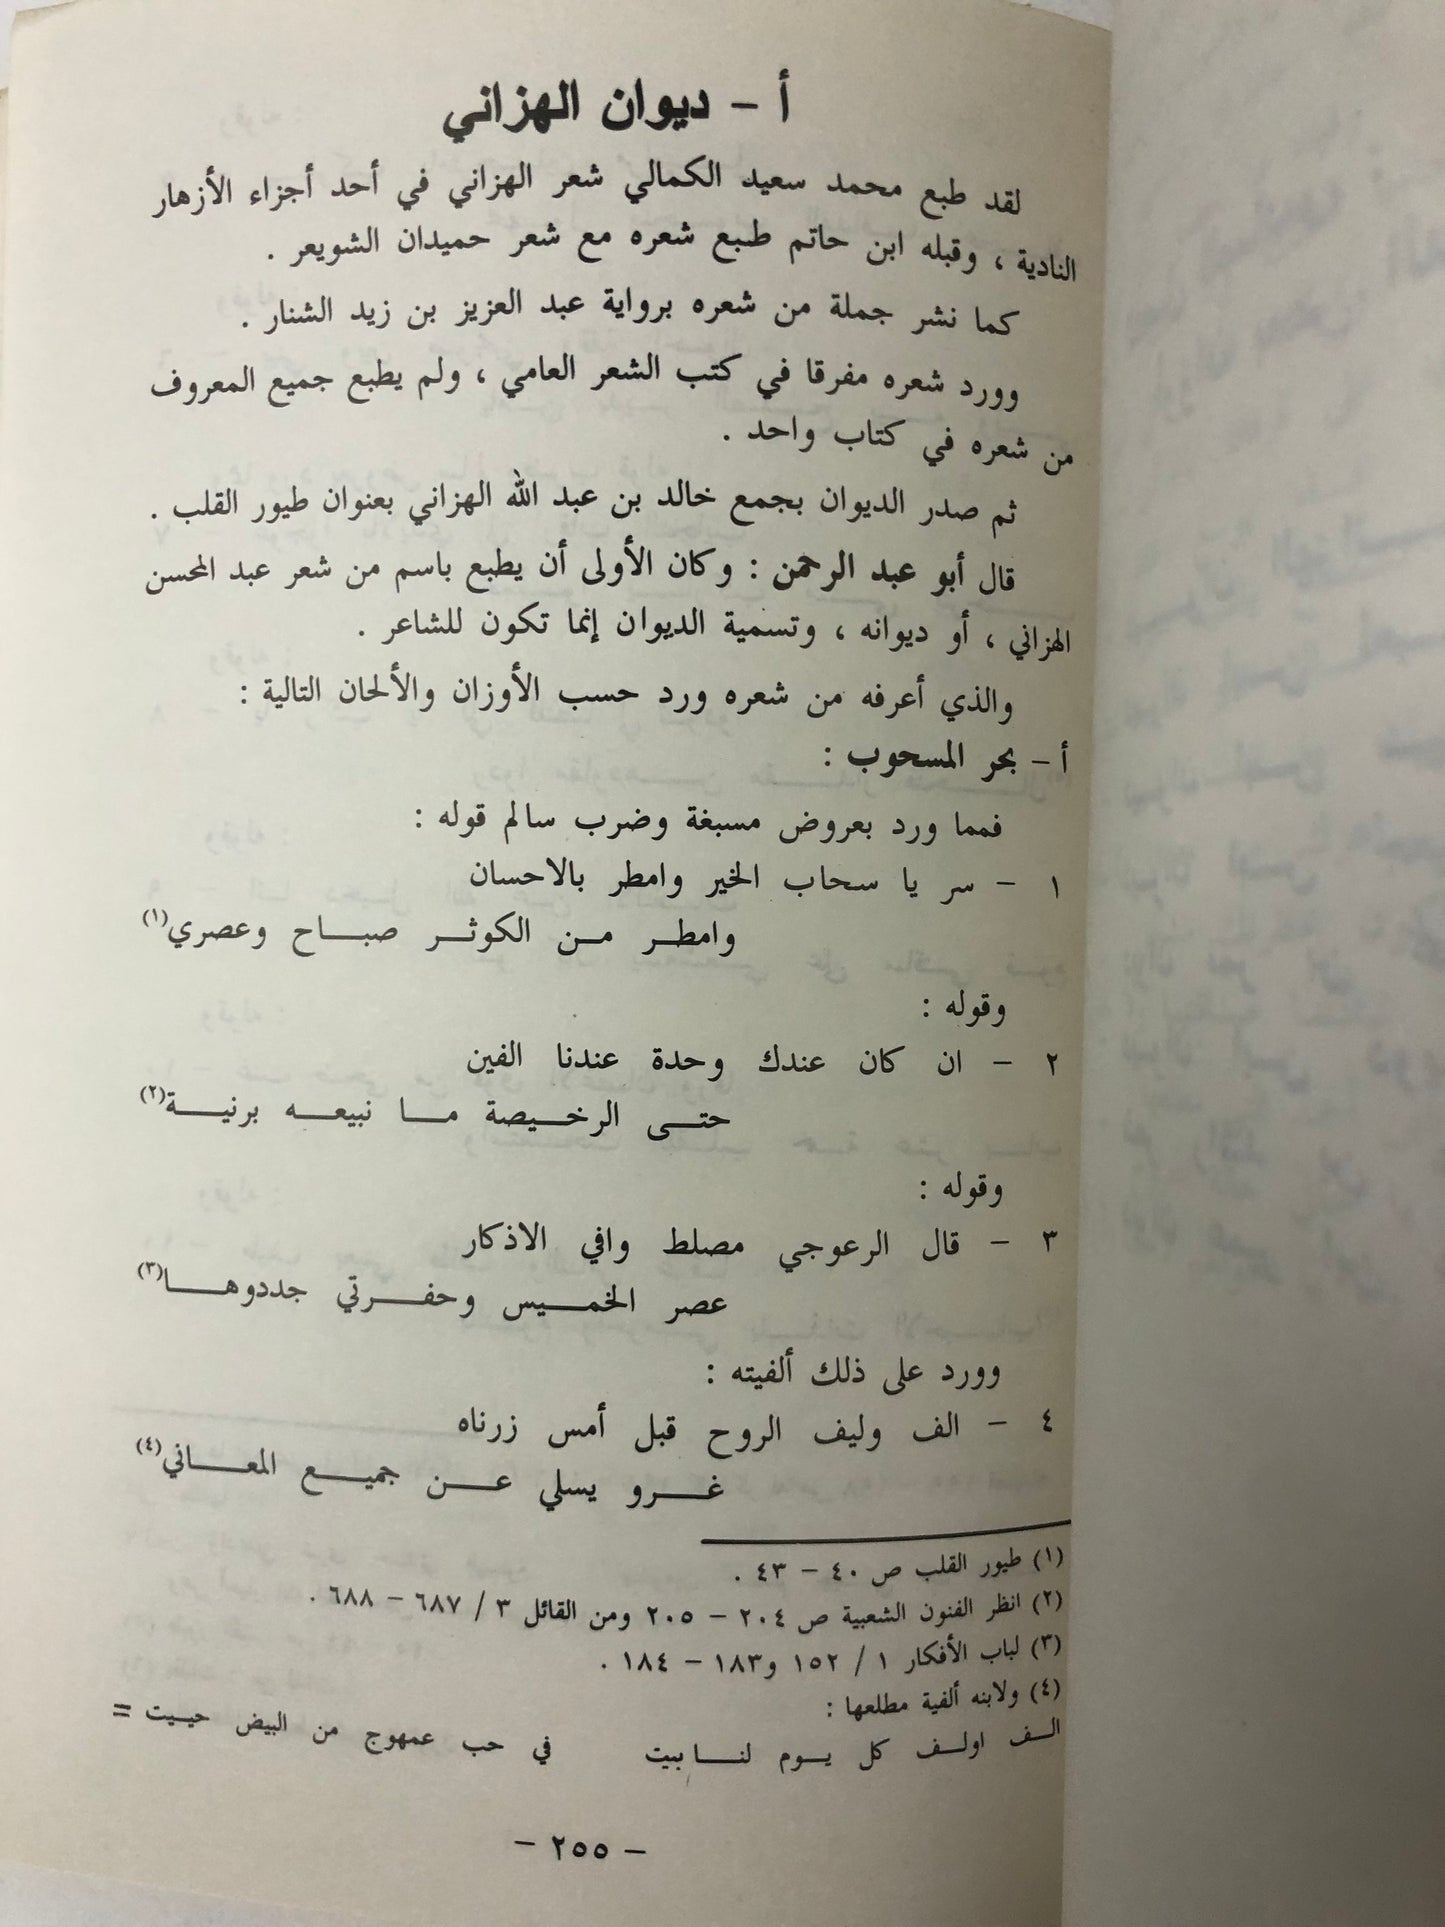 أ - ديوان الهزاني
لقد طبع محمد سعيد الكمالي شعر الهزاني في أحد أجزاء الأزهار
النادية ، وقبله ابن حاتم طبع شعره مع شعر حميدان الشويعر .
كما نشر جملة من شعره برواية عبد العزيز بن زيد الشنار .
وورد شعره مفرقا في كتب الشعر العامي ، ولم يطبع جميع المعروف
من شعره في كتاب واحد .
ثم صدر الديوان بجمع خالد بن عبد الله الهزاني بعنوان طيور القلب .
قال أبو عبد الرحمن : وكان الأولى أن يطبع باسم من شعر عبد المحسن
الهزاني ، أو ديوانه ، وتسمية الديوان إنما تكون للشاعر .
والذي أعرفه من شعره ورد حسب الأوزان والألحان التالية :
أ - بحر المسحوب :
فمما ورد بعروض مسبغة وضرب سالم قوله :
١ - سر يا سحاب الخير وامطر بالاحسان
وامطــر مــن الكوثــر صبــاح وعصري(١)
وقوله :
٢ - ان كان عندك وحدة عندنا الفين
حتــى الرخــيصة مــا نبيعــه برنيــة(٢)
وقوله :
٣ - قال الرعوجي مصلط وافي الاذكار
عصر الخمــيس وحفــرتي جددوهــا(٣)
وورد على ذلك ألفيته :
٤ - الف وليف الروح قبل أمس زرناه
غــرو يسلي عــن جميــع المعــاني(٤)
(١) طيور القلب ص ٤٠ - ٤٣ .
(٢) انظر الفنون الشعبية ص ٢٠٤ - ٢٠٥ ومن القائل ٣ / ٦٨٧ - ٦٨٨ .
(٣) لباب الأفكار ١ / ١٥٢ و١٨٣ - ١٨٤ .
(٤) ولابنه ألفية مطلعها :
الــف اولــف كل يــوم لنــا بيت في حب عمهوج من البيض حييت =
- ٢٥٥ -